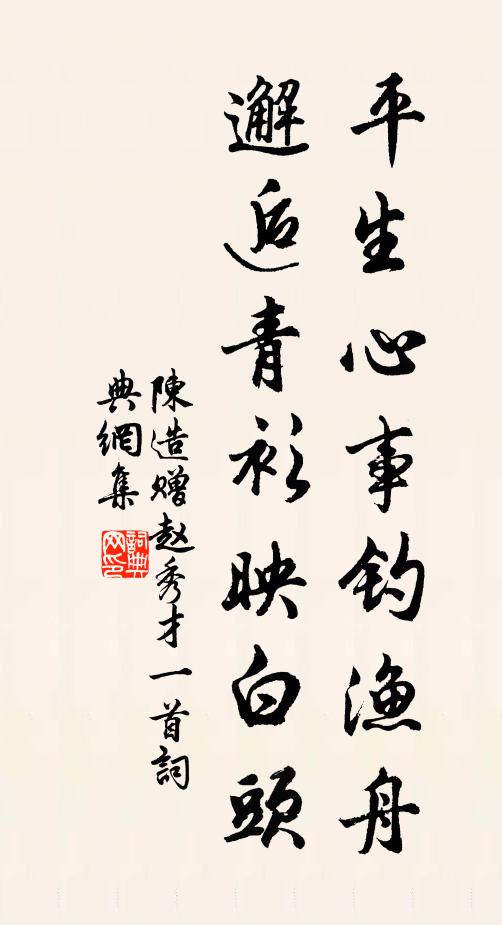 平生心事钓漁舟
邂逅青衫映白頭
陳造赠赵秀才一首詞
典網集
詞典网印